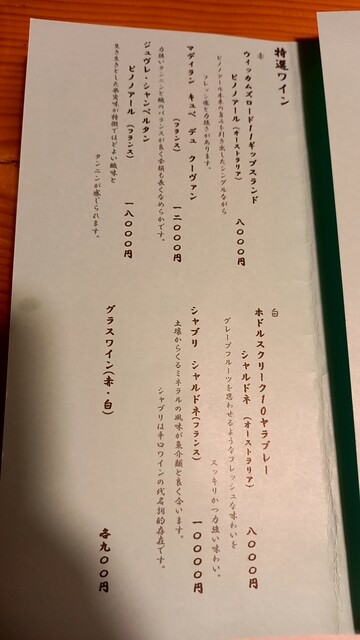 特選ワイン
赤
ウィッカムズロード11ギップスランド
ピノノアール(オーストラリア)
八〇〇〇円
ピノノアール本来の旨みを引き出したシンプルながら
フレッシュ感と力強さがあります。
マディラン キュベ デュ クーヴァン
(フランス)
一二〇〇〇円
力強いタンニンと酸のバランスが良く余韻も長くなめらかです。
ジュヴレ・シャンベルタン
ピノノアール (フランス)
一八〇〇〇円
生き生きとした果実味が特徴でほどよい酸味と
タンニンが感じられます。
白
ホドルスクリーク10ヤラブレー
シャルドネ (オーストラリア)
八〇〇〇円
グレープフルーツを思わせるようなフレッシュな味わいと
スッキリかつ力強い味わい。
シャブリ シャルドネ(フランス)
一〇〇〇〇円
土壌からくるミネラルの風味が魚介類と良く合います。
シャブリは辛口ワインの代名詞的存在です。
グラスワイン(赤・白)
各九〇〇円